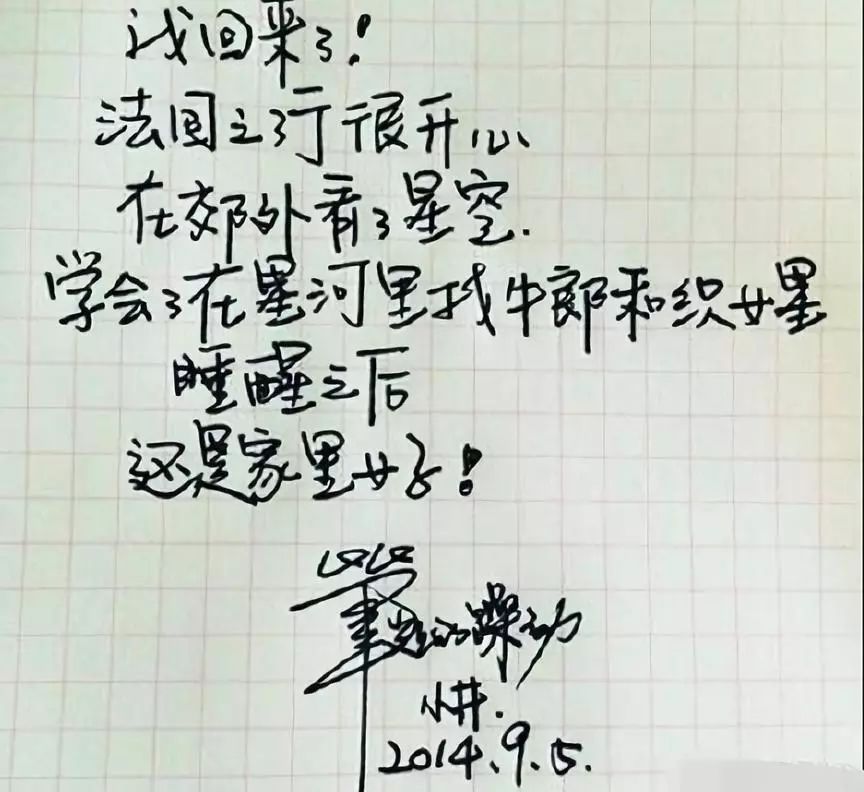 我回来了!
法国之行很开心
在郊外看了星空.
学会了在星河里找牛郎和织女星
睡醒之后
还是家里女子!
笔尖的躁动
小井.
2014.9.5.